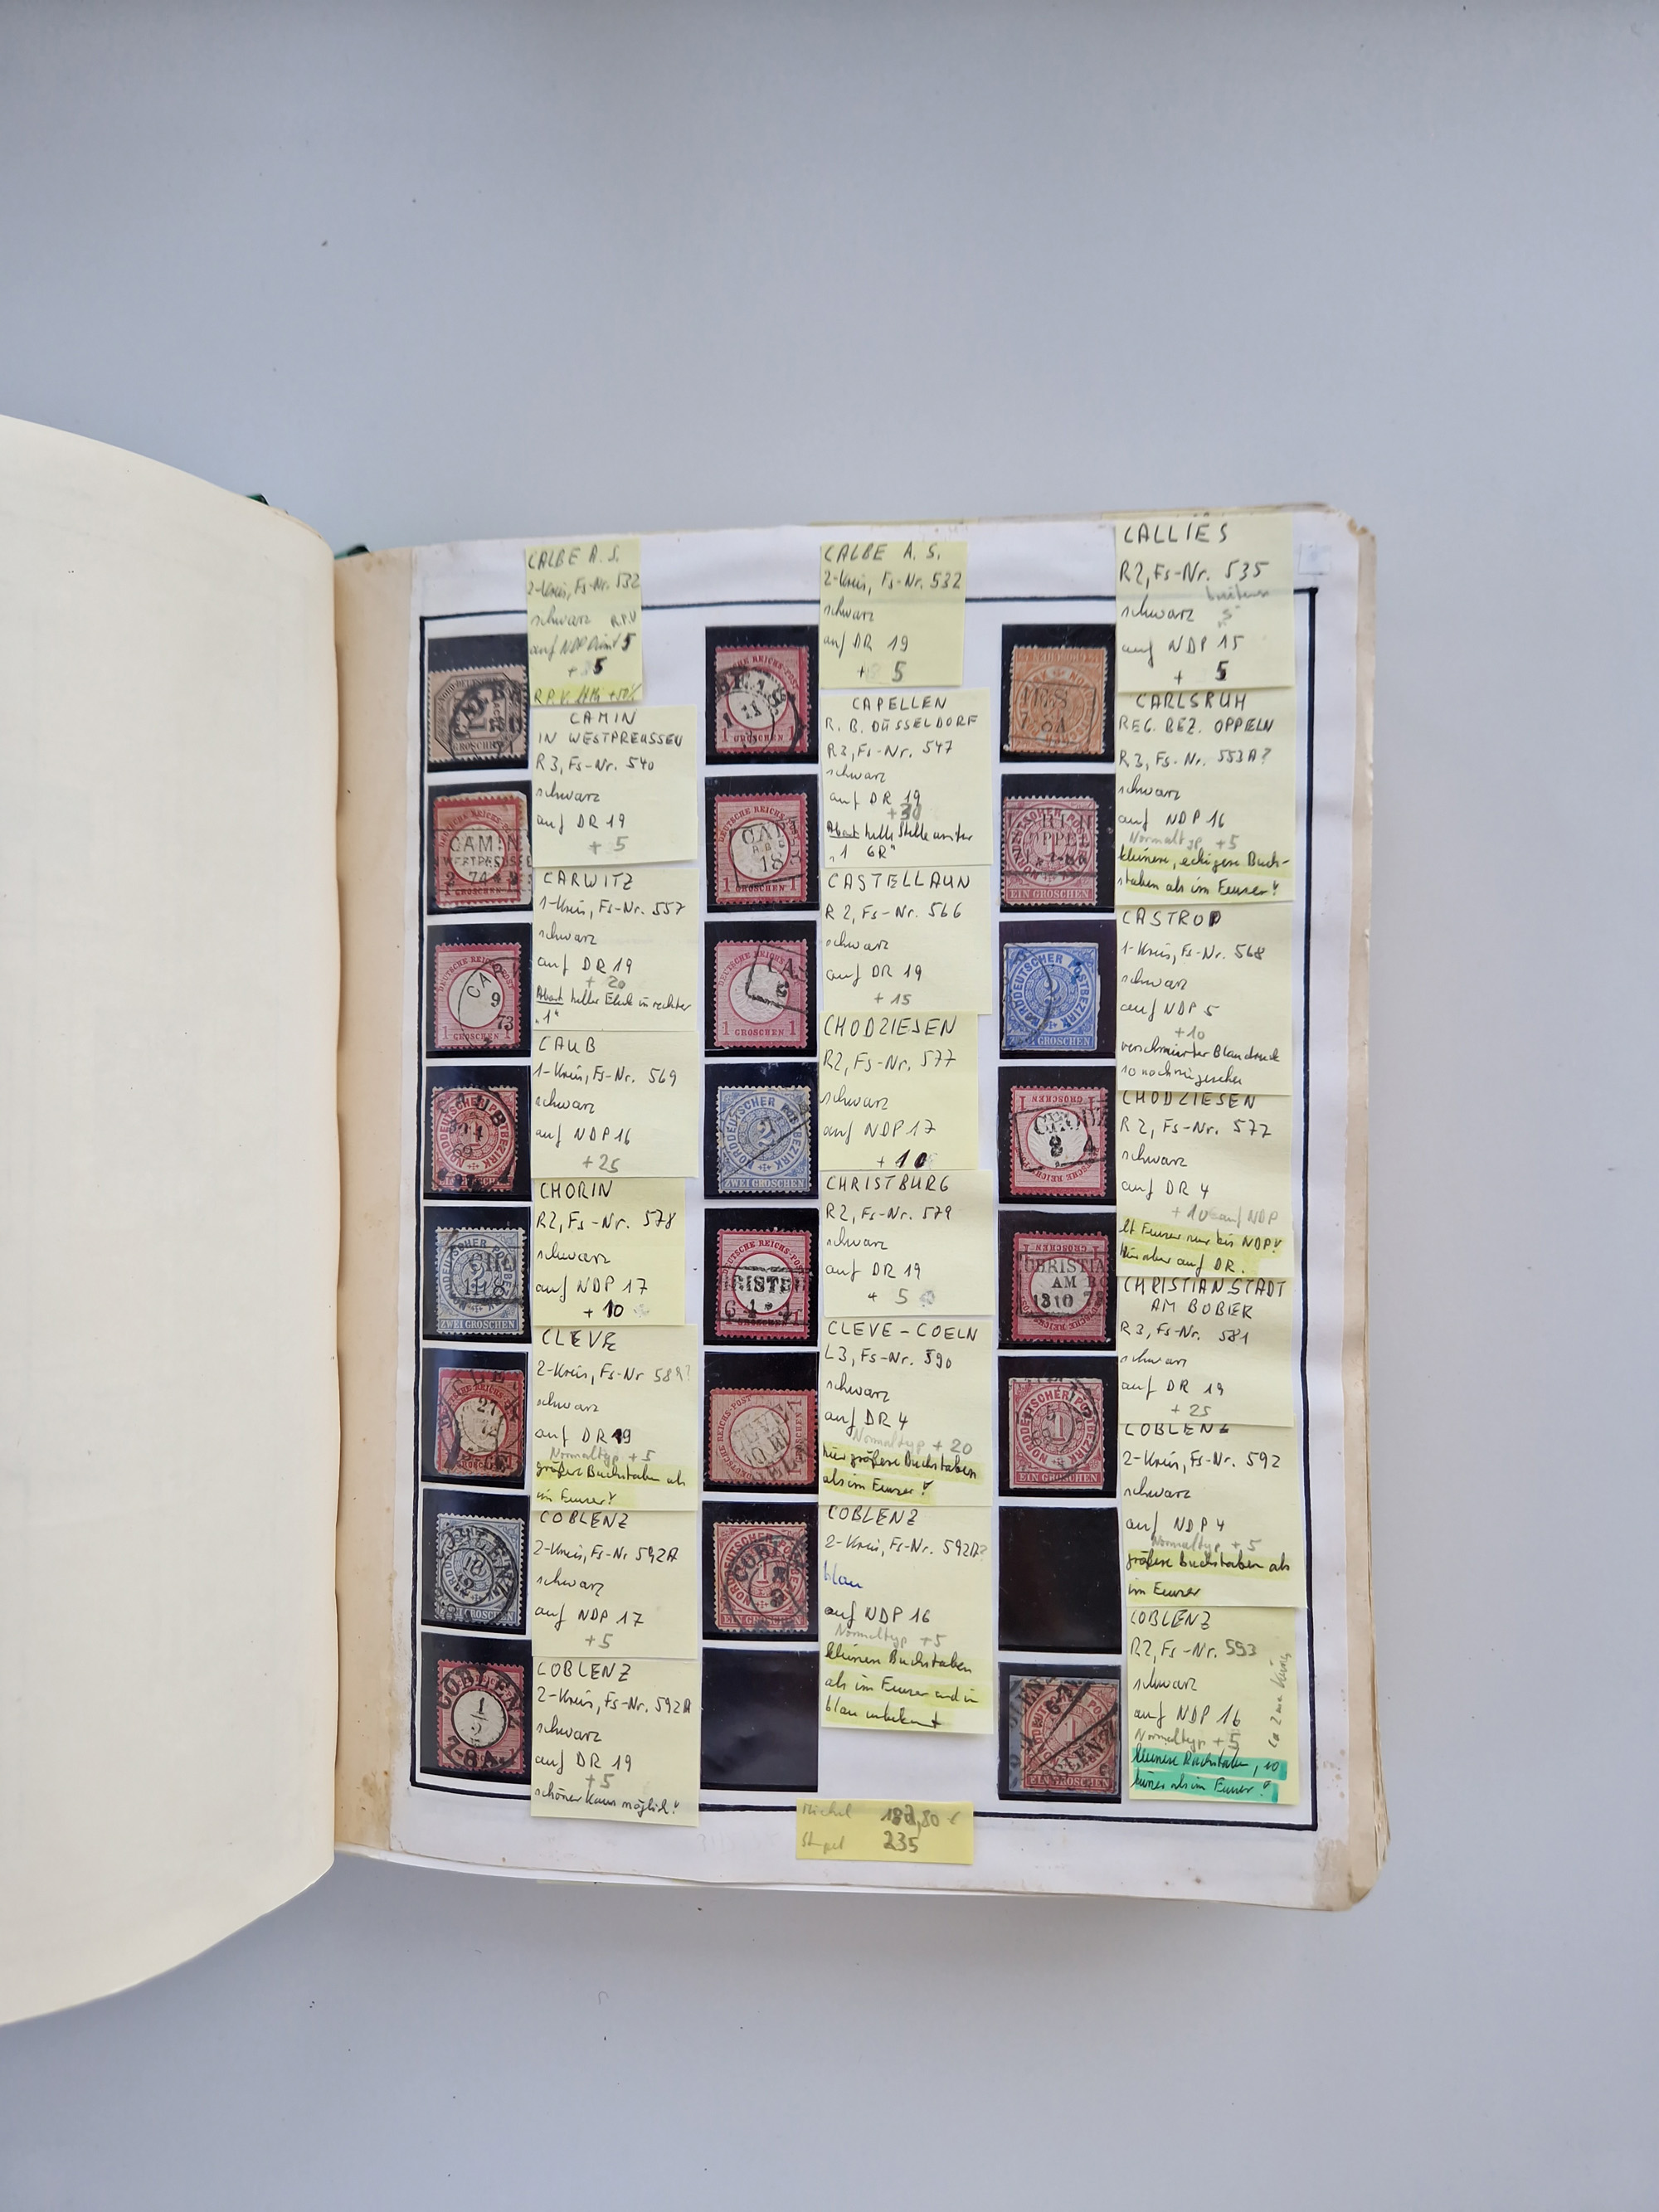 CALBE A. S.
2-Kreis, Fs-Nr. 532
schwarz R.P.V
auf NDP Dienst 5
+ 5
R.P.V. +50%
CALBE A. S.
2-Kreis, Fs-Nr. 532
schwarz
auf DR 19
+ 5
CALLIES
R2, Fs-Nr. 535
schwarz
auf NDP 15
+ 5
CAMIN
IN WESTPREUSSEN
R3, Fs-Nr. 540
schwarz
auf DR 19
+ 5
CAPELLEN
R. B. DÜSSELDORF
R3, Fs-Nr. 547
schwarz
auf DR 19
+30
Abart helle Stelle unter
"1 GR"
CARLSRUH
REG. BEZ. OPPELN
R3, Fs-Nr. 553A?
schwarz
auf NDP 16
Normaltyp +5
kleinere, eckigere Buch-
staben als im Feuser!
CARWITZ
1-Kreis, Fs-Nr. 557
schwarz
auf DR 19
+ 20
Abart heller in rechter
"1"
CASTELLAUN
R2, Fs-Nr. 566
schwarz
auf DR 19
+ 15
CASTROP
1-Kreis, Fs-Nr. 568
schwarz
auf NDP 5
+10
verschmierter Blaudruck
CAUB
1-Kreis, Fs-Nr. 569
schwarz
auf NDP 16
+25
CHODZIESEN
R2, Fs-Nr. 577
schwarz
auf NDP 17
+ 10
CHODZIESEN
R2, Fs-Nr. 577
schwarz
auf DR 4
+ 10 auf NDP
lt Feuser nur bis NDP!
hier aber auf DR.
CHORIN
R2, Fs-Nr. 578
schwarz
auf NDP 17
+ 10
CHRISTBURG
R2, Fs-Nr. 579
schwarz
auf DR 19
+ 5
CHRISTIANSTADT
AM BOBER
R3, Fs-Nr. 581
schwarz
auf DR 19
+ 25
CLEVE
2-Kreis, Fs-Nr 589?
schwarz
auf DR 19
Normaltyp + 5
größere Buchstaben als
im Feuser!
CLEVE-COELN
L3, Fs-Nr. 590
schwarz
auf DR 4
Normaltyp + 20
hier größere Buchstaben
als im Feuser!
COBLENZ
2-Kreis, Fs-Nr. 592
schwarz
auf NDP 4
Normaltyp + 5
größere Buchstaben als
im Feuser
COBLENZ
2-Kreis, Fs-Nr 592A
schwarz
auf NDP 17
+5
COBLENZ
2-Kreis, Fs-Nr. 592A?
blau
auf NDP 16
Normaltyp +5
kleinere Buchstaben
als im Feuser und in
blau unbekannt
COBLENZ
2-Kreis, Fs-Nr. 592A
schwarz
auf DR 19
+5
schöner kaum möglich!
COBLENZ
R2, Fs-Nr. 593
schwarz
auf NDP 16
Normaltyp + 5
kleinere Buchstaben, 
kürzer als im Feuser?
ca 2 mm kürzer
Michel 187,80 €
Stempel 235